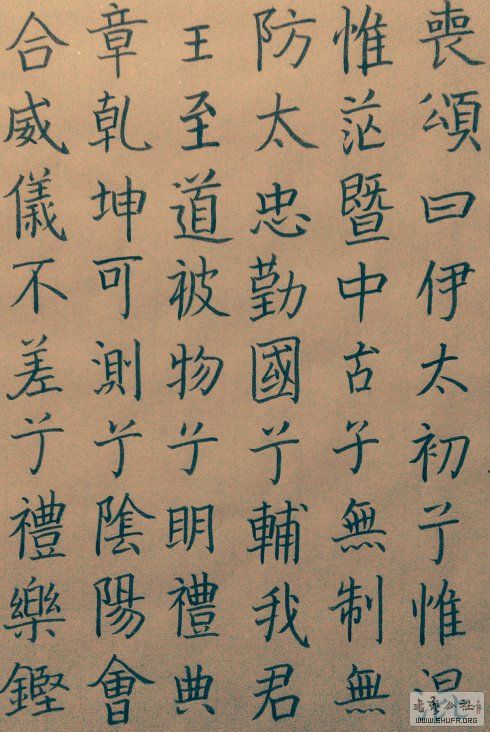 喪頌曰伊太初兮惟
惟茫暨中古子無制無
防太忠勤國兮輔我君
王至道被物兮明禮典
章乾坤可測兮陰陽會
合威儀不差兮禮樂鏗
WWW.SHUFA.ORG